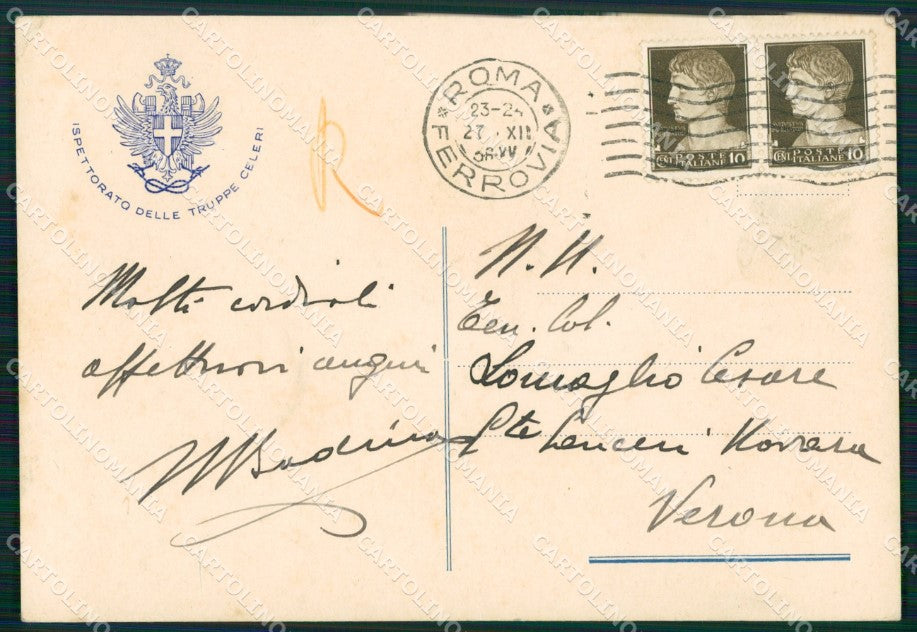 ISPETTORATO DELLE TRUPPE CELERI
ROMA
FERROVIA
23-24
27 XII
36 XV
POSTE ITALIANE
CENT 10
POSTE ITALIANE
CENT 10
R
N. H.
Ten. Col.
Lomaglio Cesare
Lancieri Novara
Verona
Molti cordiali
affettuosi auguri
CARTOLINOMANIA